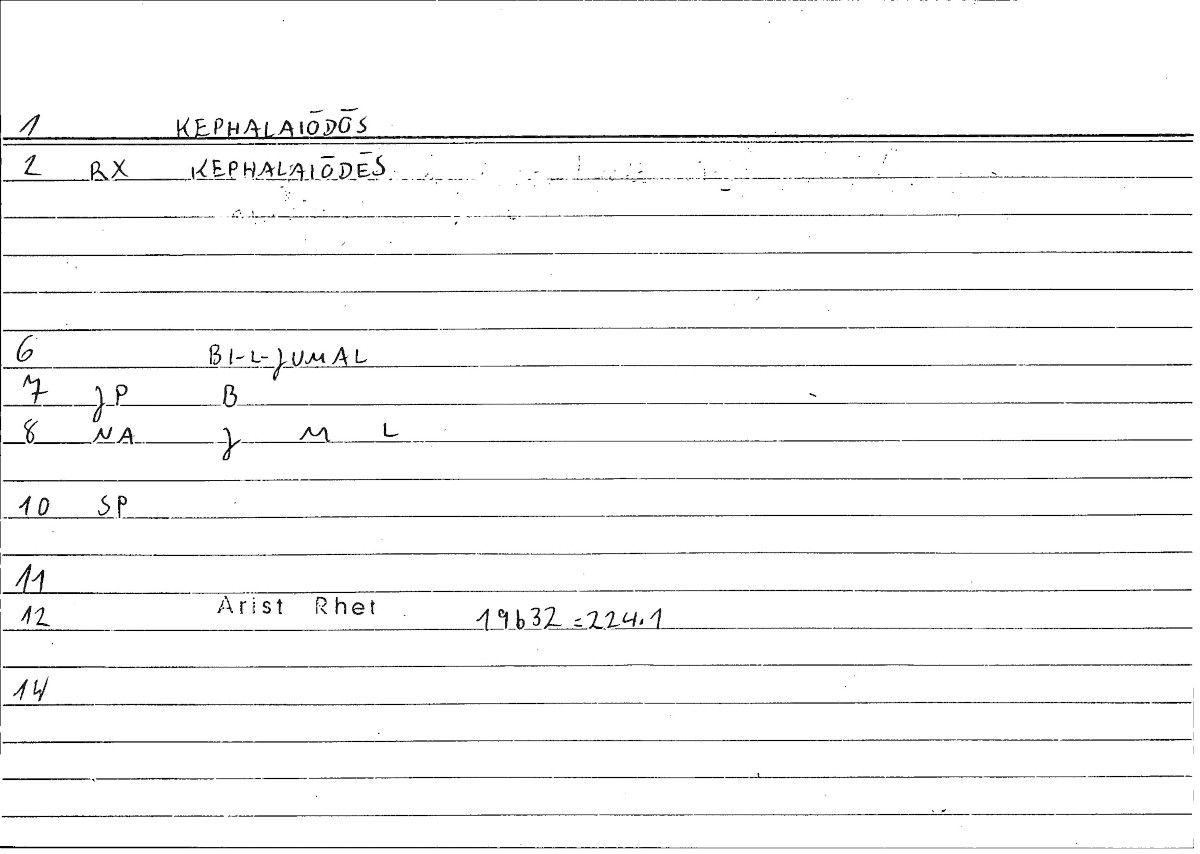 1 KEPHALAIŌDŌS
2 RX KEPHALAIŌDĒS
6 BI-L-JUMAL
7 JP B
8 NA J M L
10 SP
11
12 Arist Rhet 19b32 = 224.1
14